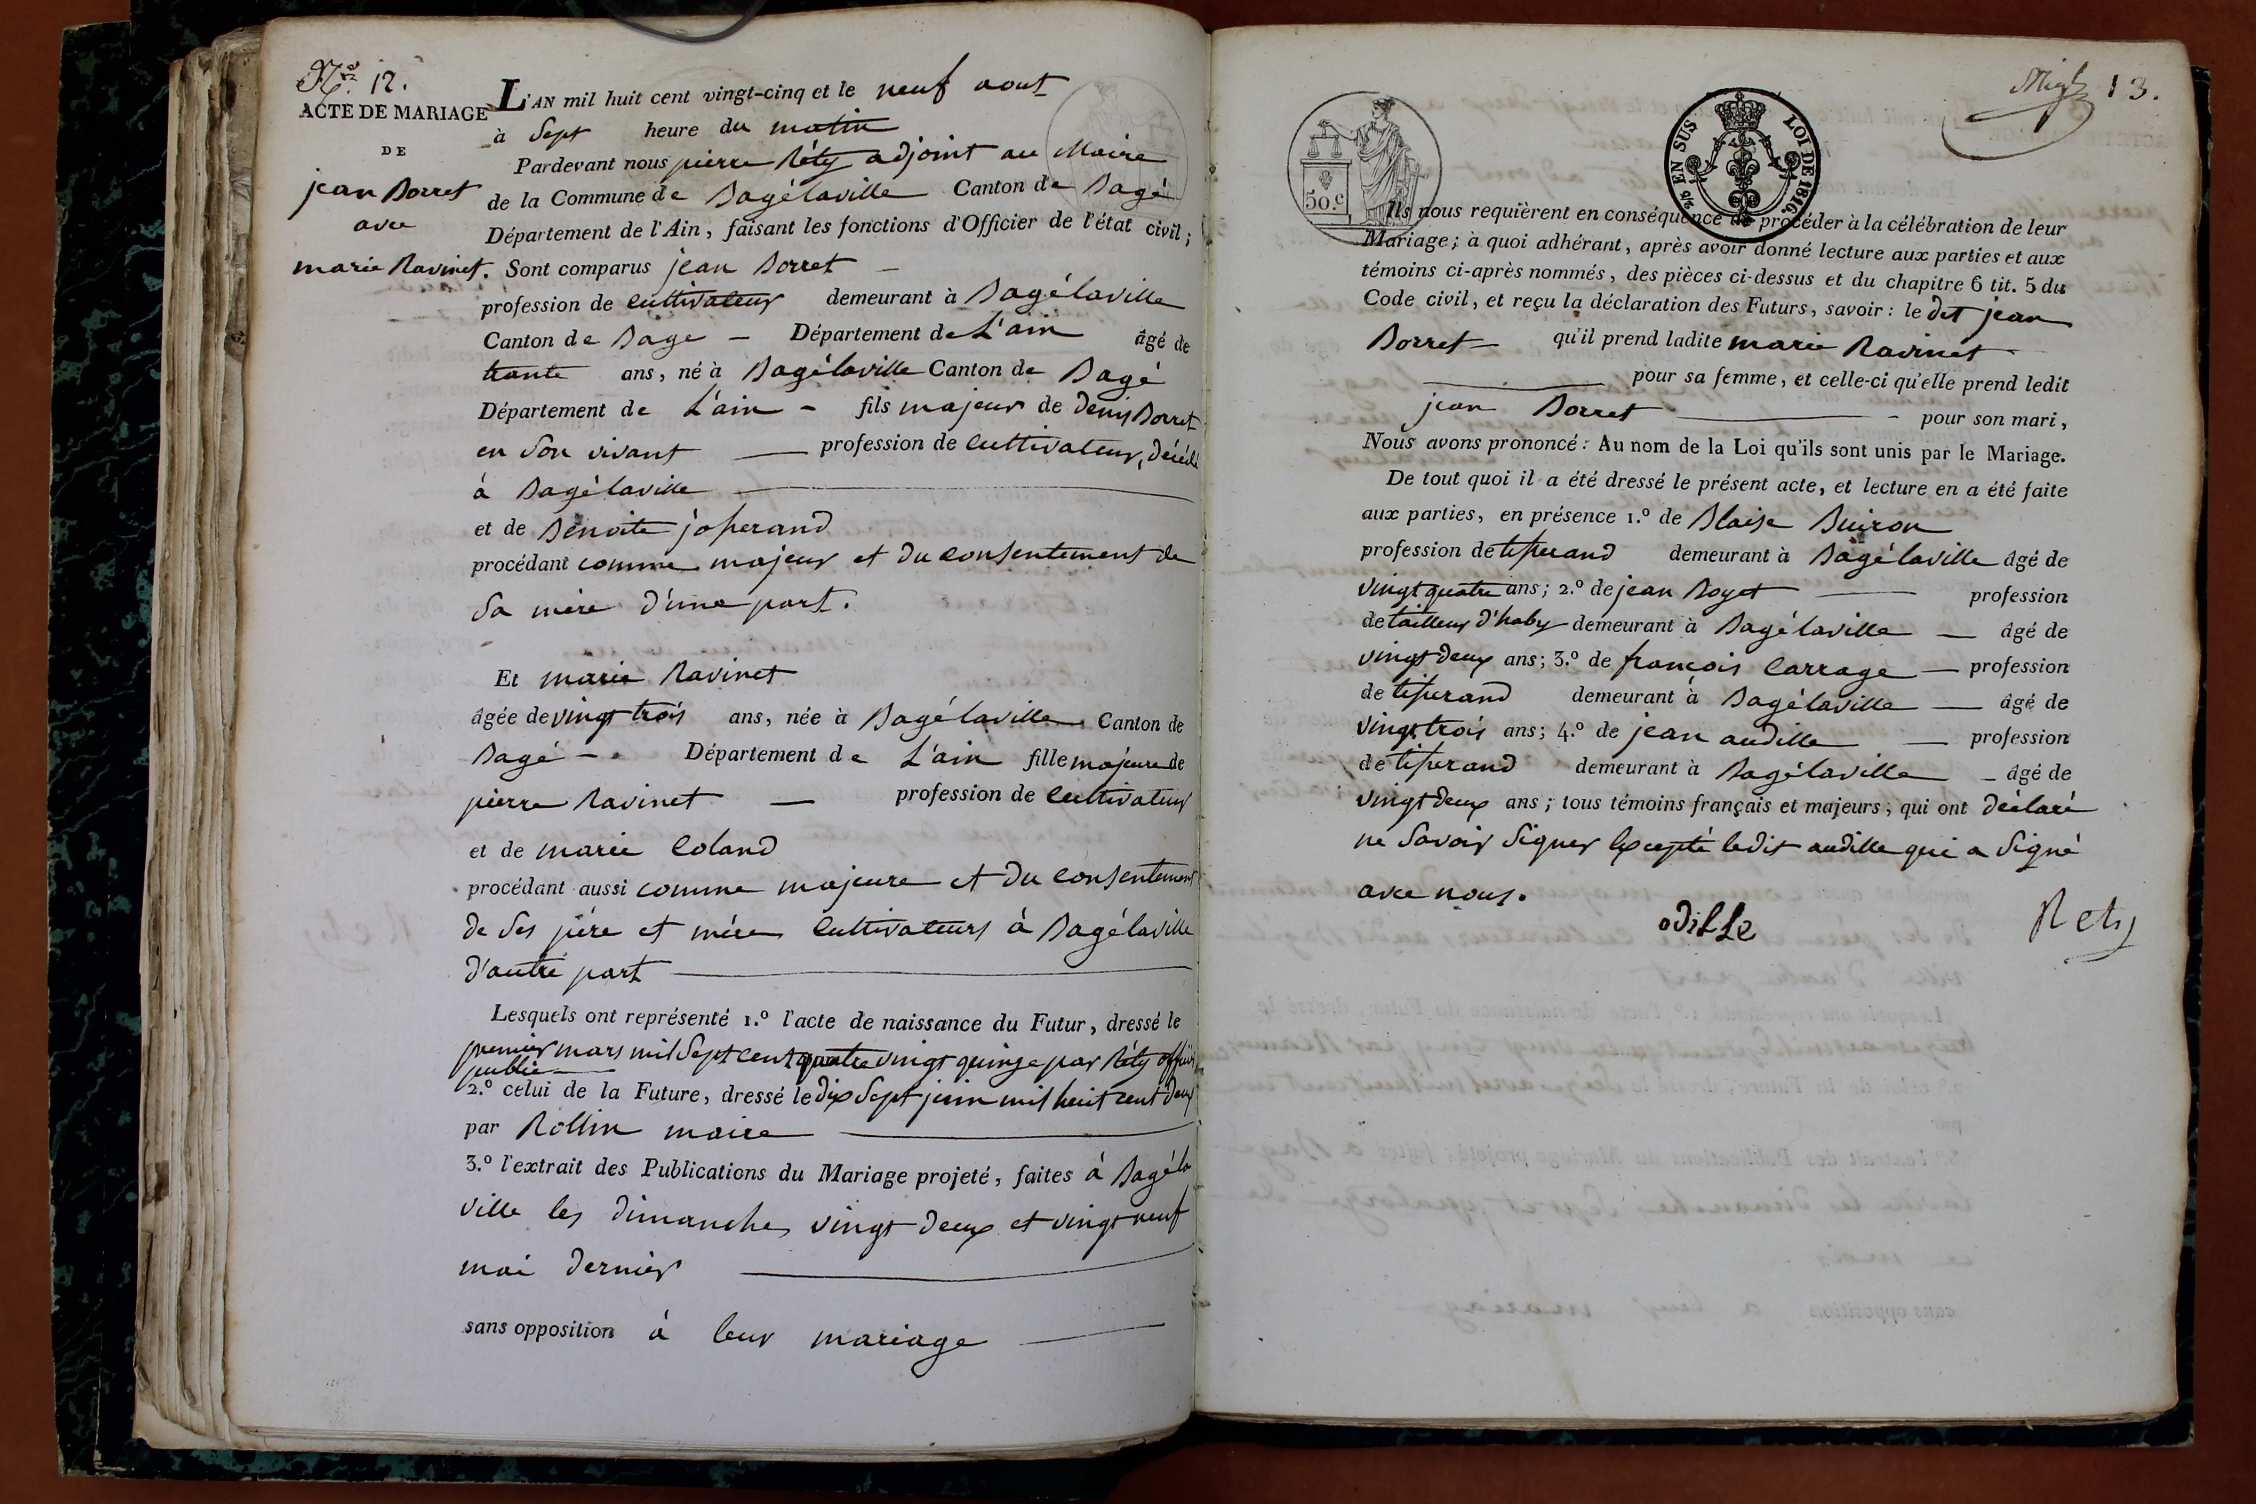 N.° 12.
ACTE DE MARIAGE
DE
jean Borret
avec
marie Ravinet.
L'AN mil huit cent vingt-cinq et le neuf aout
à Sept heure du matin
Pardevant nous pierre Réty adjoint au Maire
de la Commune de Bagélaville Canton de Bagé
Département de l'Ain, faisant les fonctions d'Officier de l'état civil;
Sont comparus jean Borret —
profession de cultivateur demeurant à Bagélaville
Canton de Bage — Département de L'ain âgé de
trante ans, né à Bagélaville Canton de Bagé
Département de L'ain — fils majeur de denis Borret
en son vivant — profession de cultivateur, décédé
à Bagélaville —
et de Benoite joperand
procédant comme majeur et du consentement de
sa mère d'une part.
Et marie Ravinet
âgée de vingt trois ans, née à Bagélaville Canton de
Bagé — Département de L'ain fille majeure de
pierre Ravinet — profession de cultivateur
et de marie Coland
procédant aussi comme majeure et du consentement
de ses père et mère cultivateurs à Bagélaville
d'autre part —
Lesquels ont représenté 1.° l'acte de naissance du Futur, dressé le
premier mars mil sept cent quatre vingt quinze par Réty officier
public —
2.° celui de la Future, dressé le dix sept juin mil huit cent deux
par Rollin maire —
3.° l'extrait des Publications du Mariage projeté, faites à Bagéla
ville les dimanches vingt deux et vingt neuf
mai dernier —
sans opposition à leur mariage —
13.
50.c
EN SUS LOI DE 1816.
Ils nous requièrent en conséquence de procéder à la célébration de leur
Mariage; à quoi adhérant, après avoir donné lecture aux parties et aux
témoins ci-après nommés, des pièces ci-dessus et du chapitre 6 tit. 5 du
Code civil, et reçu la déclaration des Futurs, savoir: le dit jean
Borret — qu'il prend ladite marie Ravinet
— pour sa femme, et celle-ci qu'elle prend ledit
jean Borret — pour son mari,
Nous avons prononcé: Au nom de la Loi qu'ils sont unis par le Mariage.
De tout quoi il a été dressé le présent acte, et lecture en a été faite
aux parties, en présence 1.° de Blaise Buiron
profession de tisserand demeurant à Bagélaville âgé de
vingt quatre ans; 2.° de jean Boyet — profession
de tailleur d'haby demeurant à Bagélaville — âgé de
vingt deux ans; 3.° de francois Carrage — profession
de tisserand demeurant à Bagélaville — âgé de
vingt trois ans; 4.° de jean audille — profession
de tisserand demeurant à Bagélaville — âgé de
vingt deux ans; tous témoins français et majeurs, qui ont déclaré
ne savoir signer Excepté ledit audille qui a signé
avec nous.
odille Rety